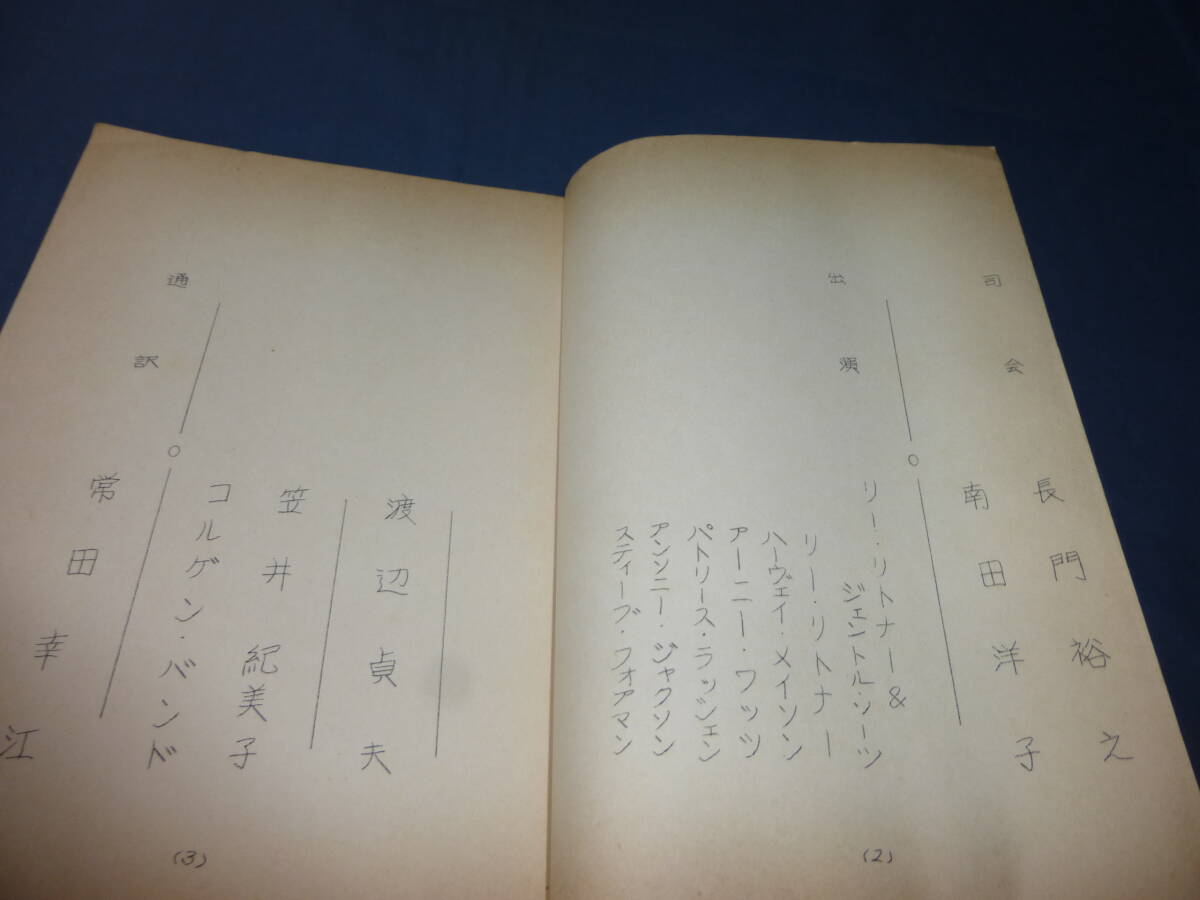 司会
長門裕之
南田洋子
出演
リー・リトナー&
ジェントル・ソーツ
リー・リトナー
ハーヴェイ・メイソン
アーニー・ワッツ
パトリース・ラッシェン
アンソニー・ジャクソン
スティーブ・フォアマン
(2)
渡辺貞夫
笠井紀美子
コルゲン・バンド
通訳
常田幸江
(3)